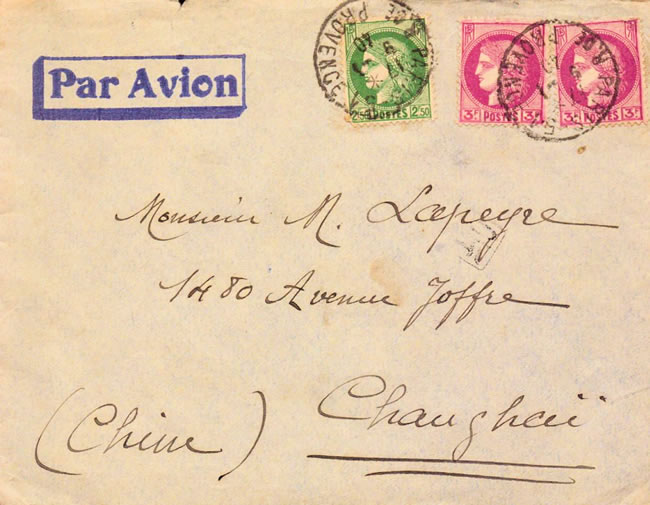 Par Avion
2,50 POSTES 2,50
3F POSTES 3F
3F POSTES 3F
Monsieur M. Lapeyre
1480 Avenue Joffre
(Chine) Changhaï